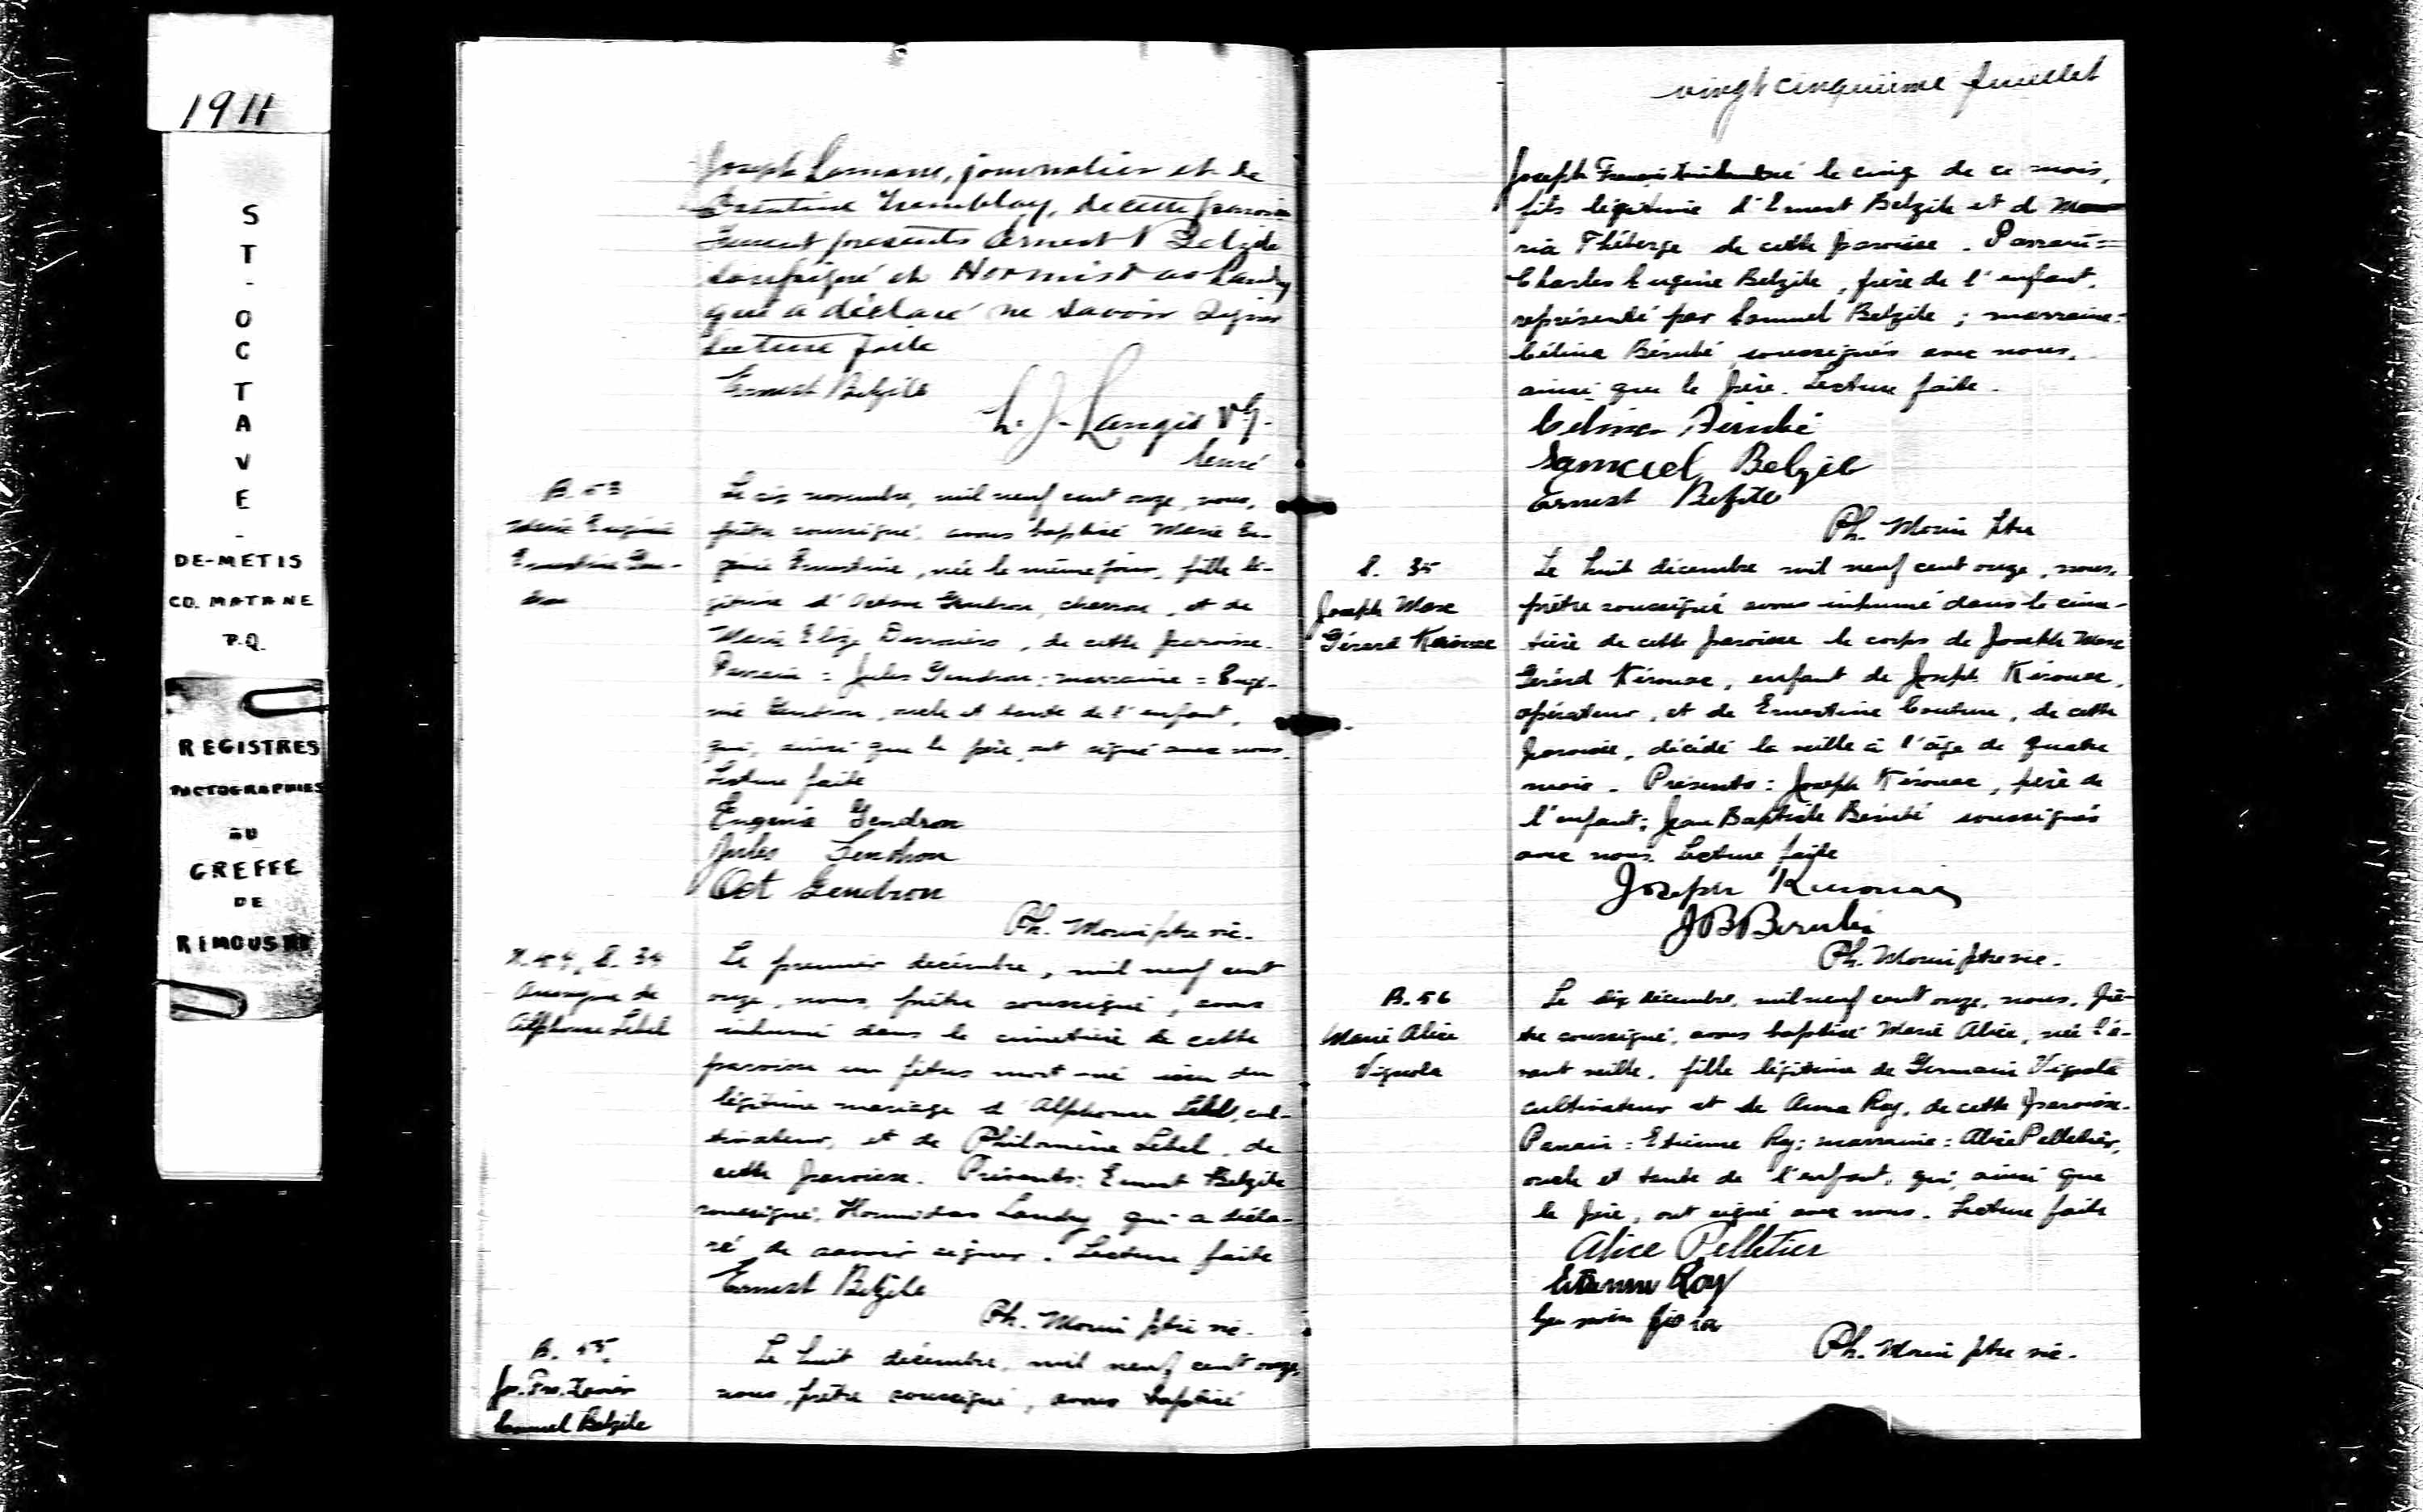 1911
S
T
-
O
C
T
A
V
E
-
DE-METIS
CO. MATANE
P.Q.
REGISTRES
PHOTOGRAPHIES
AU
GREFFE
DE
RIMOUSKI
Joseph journalier et de
Tremblay, de cette paroisse
Furent presents Ernest Belzile
soussigné et Hormisdas Landry
qui a déclaré ne savoir signer
Lecture faite
Ernest Belzile
L. J. Langis V.G.
Curé
B. 53
Marie Eugénie
Ernestine Gen-
dron
Le six novembre, mil neuf cent onze, nous,
prêtre soussigné, avons baptisé Marie Eu-
génie Ernestine, née le même jour, fille lé-
gitime d' Gendron, et de
Marie Elise de cette paroisse.
Parrain = Jules Gendron; marraine = Eugé-
nie Gendron, oncle et tante de l'enfant,
qui, ainsi que le père, ont signé avec nous.
Lecture faite
Eugénie Gendron
Jules Gendron
Oct Gendron
Ph. Morin ptre vic.
S. 34
Anonyme de
Alphonse Lebel
Le premier decémbre, mil neuf cent
onze, nous, prêtre soussigné, avons
inhumé dans le cimetière de cette
paroisse un fétus mort-né issu du
légitime mariage d'Alphonse Lebel, cul-
tivateur, et de Philomène Lebel, de
cette paroisse. Présents: Ernest Belzile
soussigné, Hormidas Landry qui a décla-
ré de savoir signer. Lecture faite
Ernest Belzile
Ph. Morin ptre vic.
B. 55.
Jos. Frs. Xavier
Samuel Belzile
Le huit décembre, mil neuf cent onze,
nous, prêtre soussigné, avons baptisé
vingt cinquième feuillet
Joseph le cinq de ce mois,
fils légitime d'Ernest Belzile et d Ma
ria Théberge de cette paroisse. Parrain =
Charles Eugène Belzile, frère de l'enfant,
représenté par Samuel Belzile; marraine =
Célina Bérubé, soussignés avec nous,
ainsi que le père. Lecture faite.
Celina Bérubé
Samuel Belzile
Ernest Belzile
Ph. Morin Ptre
S. 35
Joseph Marc
Gérard Kérouac
Le huit décembre mil neuf cent onze, nous,
prêtre soussigné avons inhumé dans le cime-
tière de cette paroisse le corps de Joseph Marc
Gérard Kérouac, enfant de Joseph Kérouac,
opérateur, et de Ernestine Couture, de cette
paroisse, décédé la veille à l'âge de quatre
mois. Présents: Joseph Kérouac, père de
l'enfant; Jean Baptiste Bérubé soussignés
avec nous. Lecture faite
Joseph Kerouac
J B Berubé
Ph. Morin ptre vic.
B. 56
Marie Alice
Vignola
Le dix décembre, mil neuf cent onze, nous, prê-
tre soussigné, avons baptisé Marie Alice, née l'a-
vant veille, fille légitime de Germain Vignola
cultivateur et de Anna Roy, de cette paroisse.
Parrain = Etienne Roy; marraine = Alice Pelletier,
oncle et tante de l'enfant, qui, ainsi que
le père, ont signé avec nous. Lecture faite
Alice Pelletier
Etienne Roy
Ph. Morin ptre vic.